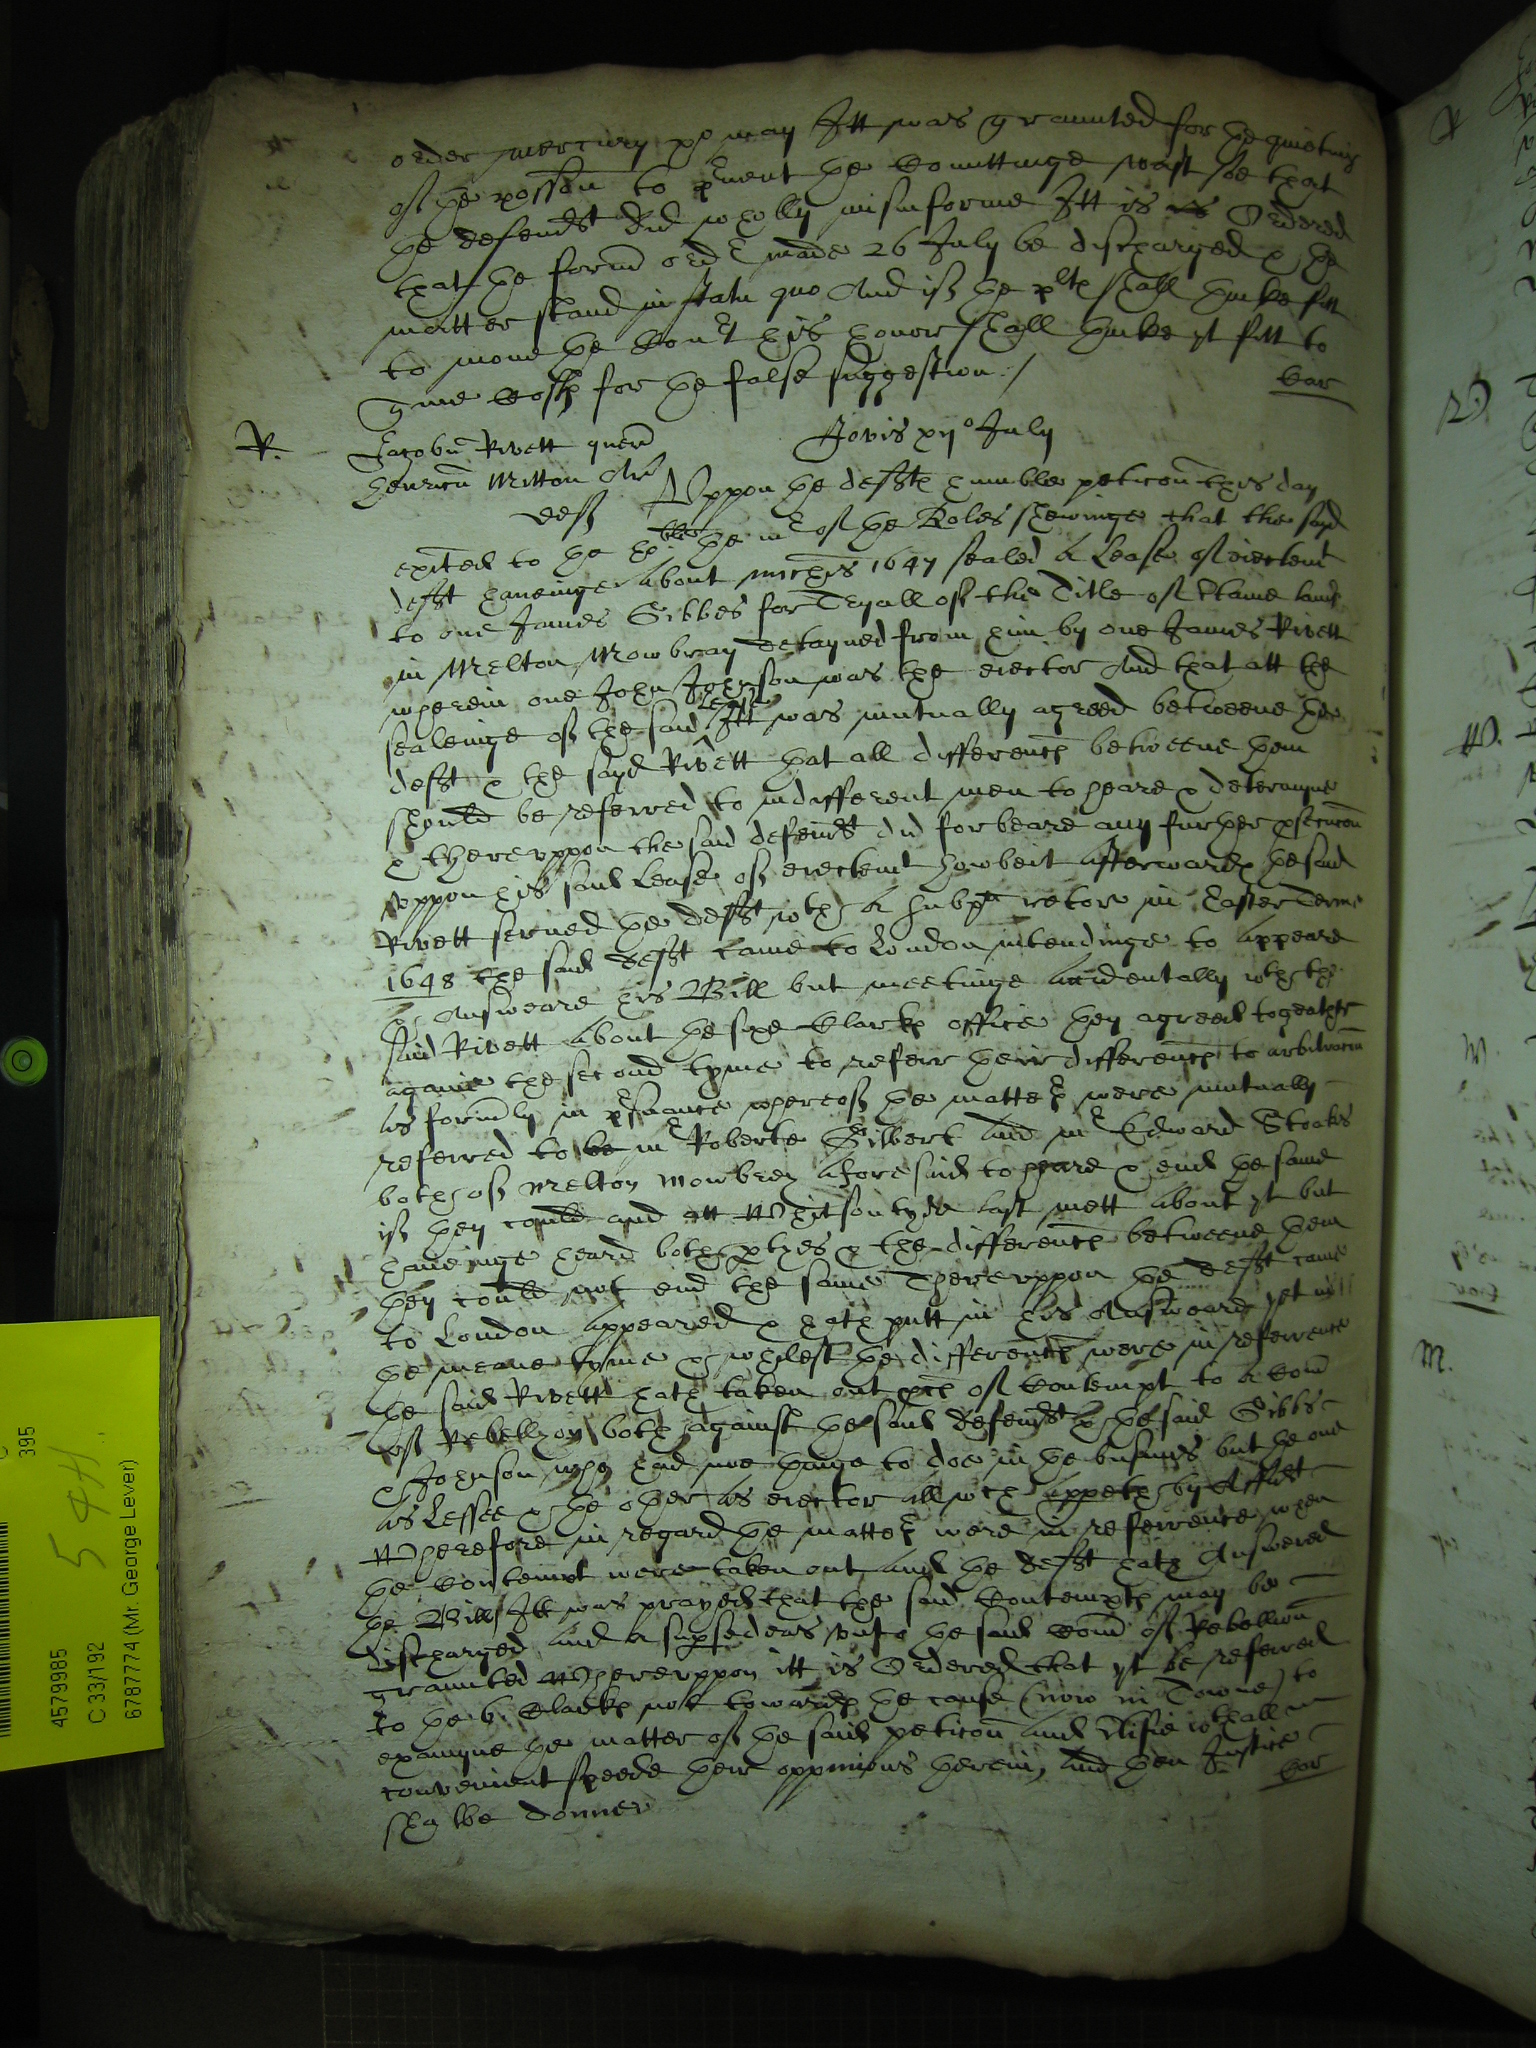 order mercurij xo may Itt was graunted for the quieting
of the possōn to pͬvent the Comittinge wast soe that
the defendt did wholly misinforme Itt is Ordered
that the formͬ ordͬ made 26 July be discharged & the
matter stand in statu quo And if the plts shall thinke fitt
to move the Court his honor shall thinke yt fitt to
give Costs for the false suggestion /
Jovis xijo July
R.
Jacobus Rivett quer
Henricus Mitton Ar
deft
Uppon the defts humble peticon this day
exhited to the Ho:ble the mͬ of the Roles shewinge that the sayd
deft haveinge about Michis 1647 sealed A Lease of eiectemt
to one James Gibbes for Tryall of the Title of Some lands
in Melton Mowbray detayned from him by one James Rivett
wherein one John Johnson was the eiector And that att the
sealeinge of the said Lease Itt was mutually agreed betweene the
deft & the sayd Rivett that all differences betweene them
should be referred to indifferent men to heare & determyne
& thereuppon the said defendt did forbeare any further psecucon
uppon his said Lease of eiectemt howbeit afterwards the said
Rivett served the deft wth A Subpa retor in Easter Terme
1648 the said deft came to London intendinge to Appeare
& Answeare his Bill but meetinge accidentally wth the
said Rivett about the sixe Clarks office they agreed togeather
againe the second tyme to referr their differences to arbitracon
as formͬly in pͬsuance whereof the matters were mutually
referred to mͬ Roberte Gilbert and mͬ Edward Stoakes
both of Melton Mowbrey aforesaid to heare & end the same
if they could and att Whitsontyde last mett about yt but
haveinge heard both pties & the differences betweene them
they could not end the same Thereuppon the deft came
to London Appeared & hath putt in his Answeare yet in
the meane tyme & whilest the differences were in referrence
the said Rivett hath taken out pces of Contempt to A Com
of Rebellyon both against the said defendt & the said Gibbs
& Johnson who had noe thinge to doe in the busines but the one
as Lessee & the other as eiector All wch appeth by Affidt
Wherefore in regard the matters were in referrence when
the Contempt were taken out and the deft hath Answered
the Bill Itt was prayed that the said Contempts may be
discharged and A supsedeas unto the said Com of Rebellion
graunted Whereuppon itt is Ordered that yt be referred
to the 6 Clarks not towards the cause (now in Towne) to
examyne the matter of the said peticon and Certifie wth all
convenient speede their oppinions therein, and then Justice
shalbe donne
395
54H
4579985
C 33/192
6787774 (Mr. George Lever)